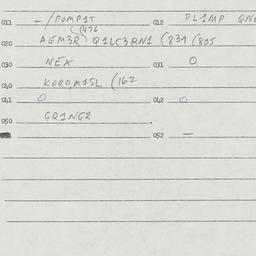 011 -/POMP1T 012 PL1MP QNE
(476
020 AEM3R Q1LC3RN1 (839 (805
030 NEX 031 O
040 KOROM15L (162
041 O 042 O
050 GR1NG2
052 —